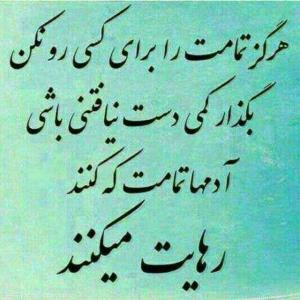 هرگز تمامت را برای کسی رو نکن
بگذار کمی دست نیافتنی باشی
آدمها تمامت که کنند
رهایت میکنند